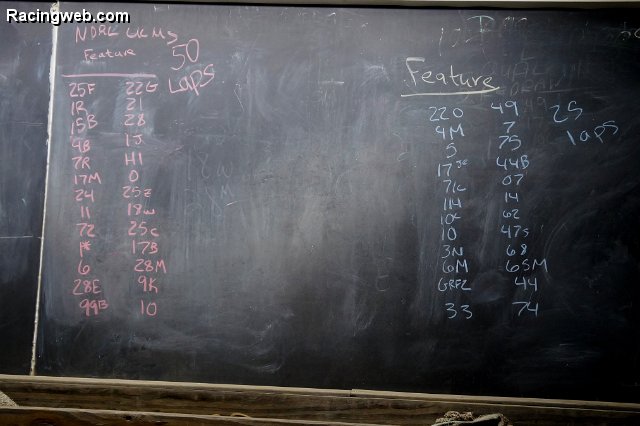 Racingweb.com
NDRL LCMS
Feature
50
Laps
25F 22G
1R 21
15B 28
9B 1J
7R H1
17M 0
24 25z
11 18w
72 25c
1* 17B
6 28M
28E 9K
99B 10
Feature
25
laps
220 49
4M 7
5 75
17Jc 44B
71c 07
114 14
10c 62
10 47s
3N 68
6M 65M
GRFZ 44
33 74